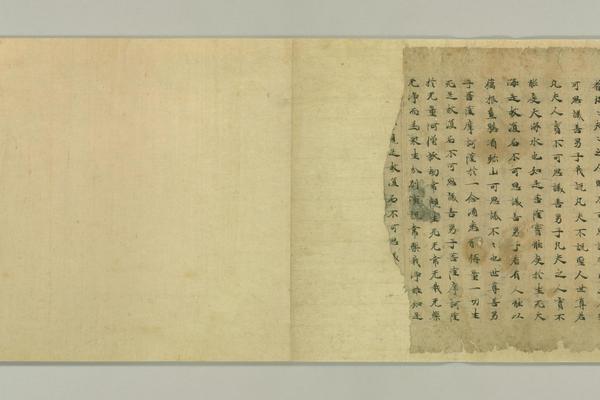 可思議善男子我說凡夫不說聖人世尊若
凡夫人實不可思議善男子凡夫之人實不
能度大海水也如是菩薩實能度於生死大
海是故復名不可思議善男子若有人能以
藕根懸須弥山可思議不〻也世尊善男
子菩薩摩訶薩於一念頃悉能稱量一切生
死是故復名不可思議善男子菩薩摩訶薩
於无量阿僧祇劫常觀生死无常无我无樂
无淨而為衆生分別演說常樂我淨雖如是
是故復名不可思議